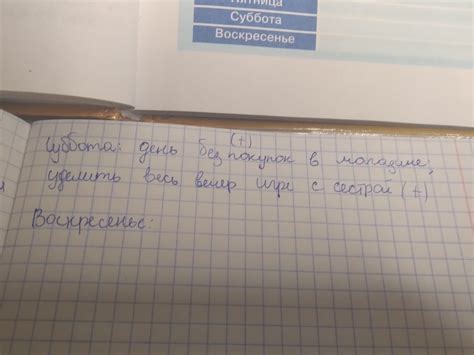 Пятница
Суббота
Воскресенье
(+)
Суббота: день без покупок в магазине;
уделить весь вечер игре с сестрой (+)
Воскресенье: